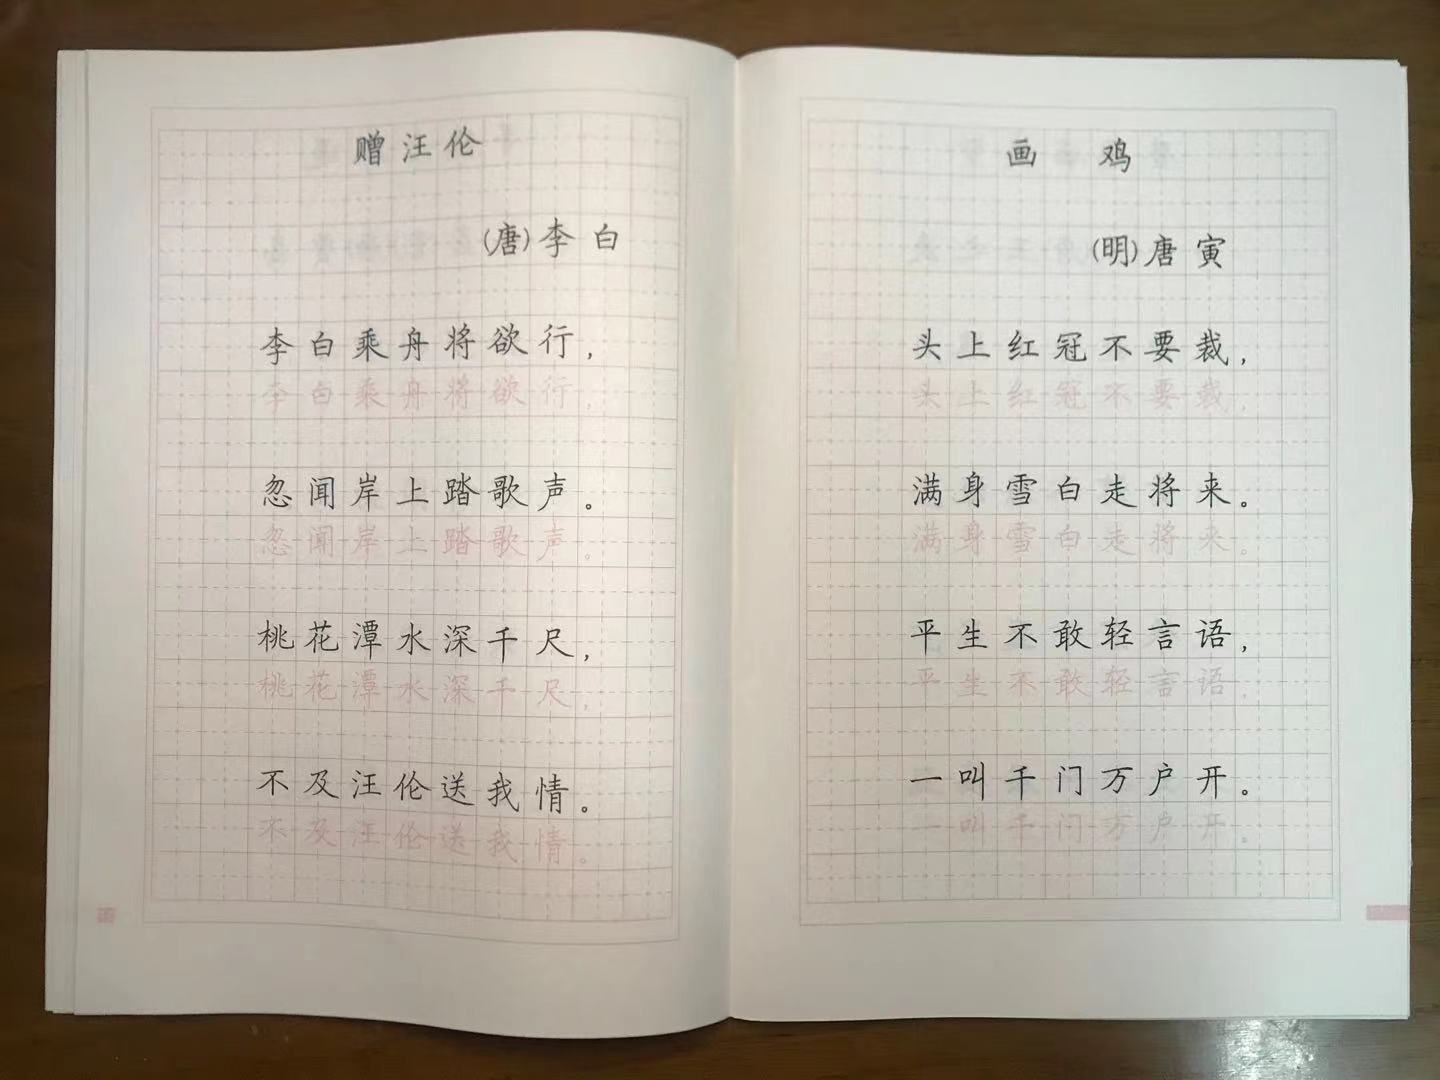 赠汪伦
(唐)李白
李白乘舟将欲行,
李白乘舟将欲行,
忽闻岸上踏歌声。
忽闻岸上踏歌声。
桃花潭水深千尺,
桃花潭水深千尺,
不及汪伦送我情。
不及汪伦送我情。
画鸡
(明)唐寅
头上红冠不要裁,
头上红冠不要裁,
满身雪白走将来。
满身雪白走将来。
平生不敢轻言语,
平生不敢轻言语,
一叫千门万户开。
一叫千门万户开。